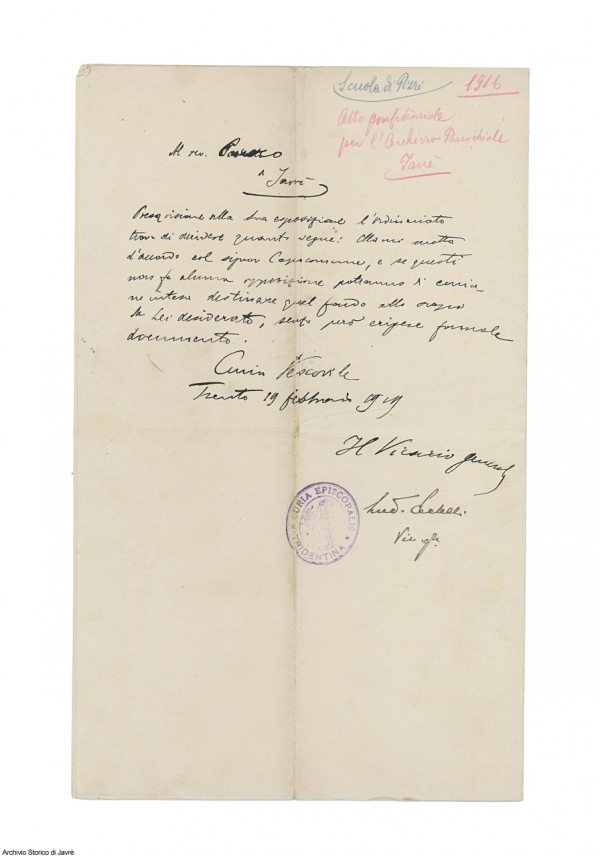 Scuola di Pizzi
1916
Atto confidenziale
per l'Archivio Parrochiale
Javrè
Al rev. Parroco
a Javrè
alla Sua esposizione l'Ordinariato
trova di decidere quanto segue: Ella si metta
d'accordo col signor Capocomune, e se questi
non fa alcuna opposizione potranno di comu-
ne intesa destinare quel fondo allo scopo
da Lei desiderato, senza però erigere formale
documento.
Curia Vescovile
Trento 19 febbraio 1919
Il Vicario generale
Lud.
Vic. gle
CURIA EPISCOPALIS
TRIDENTINA
Archivio Storico di Javrè